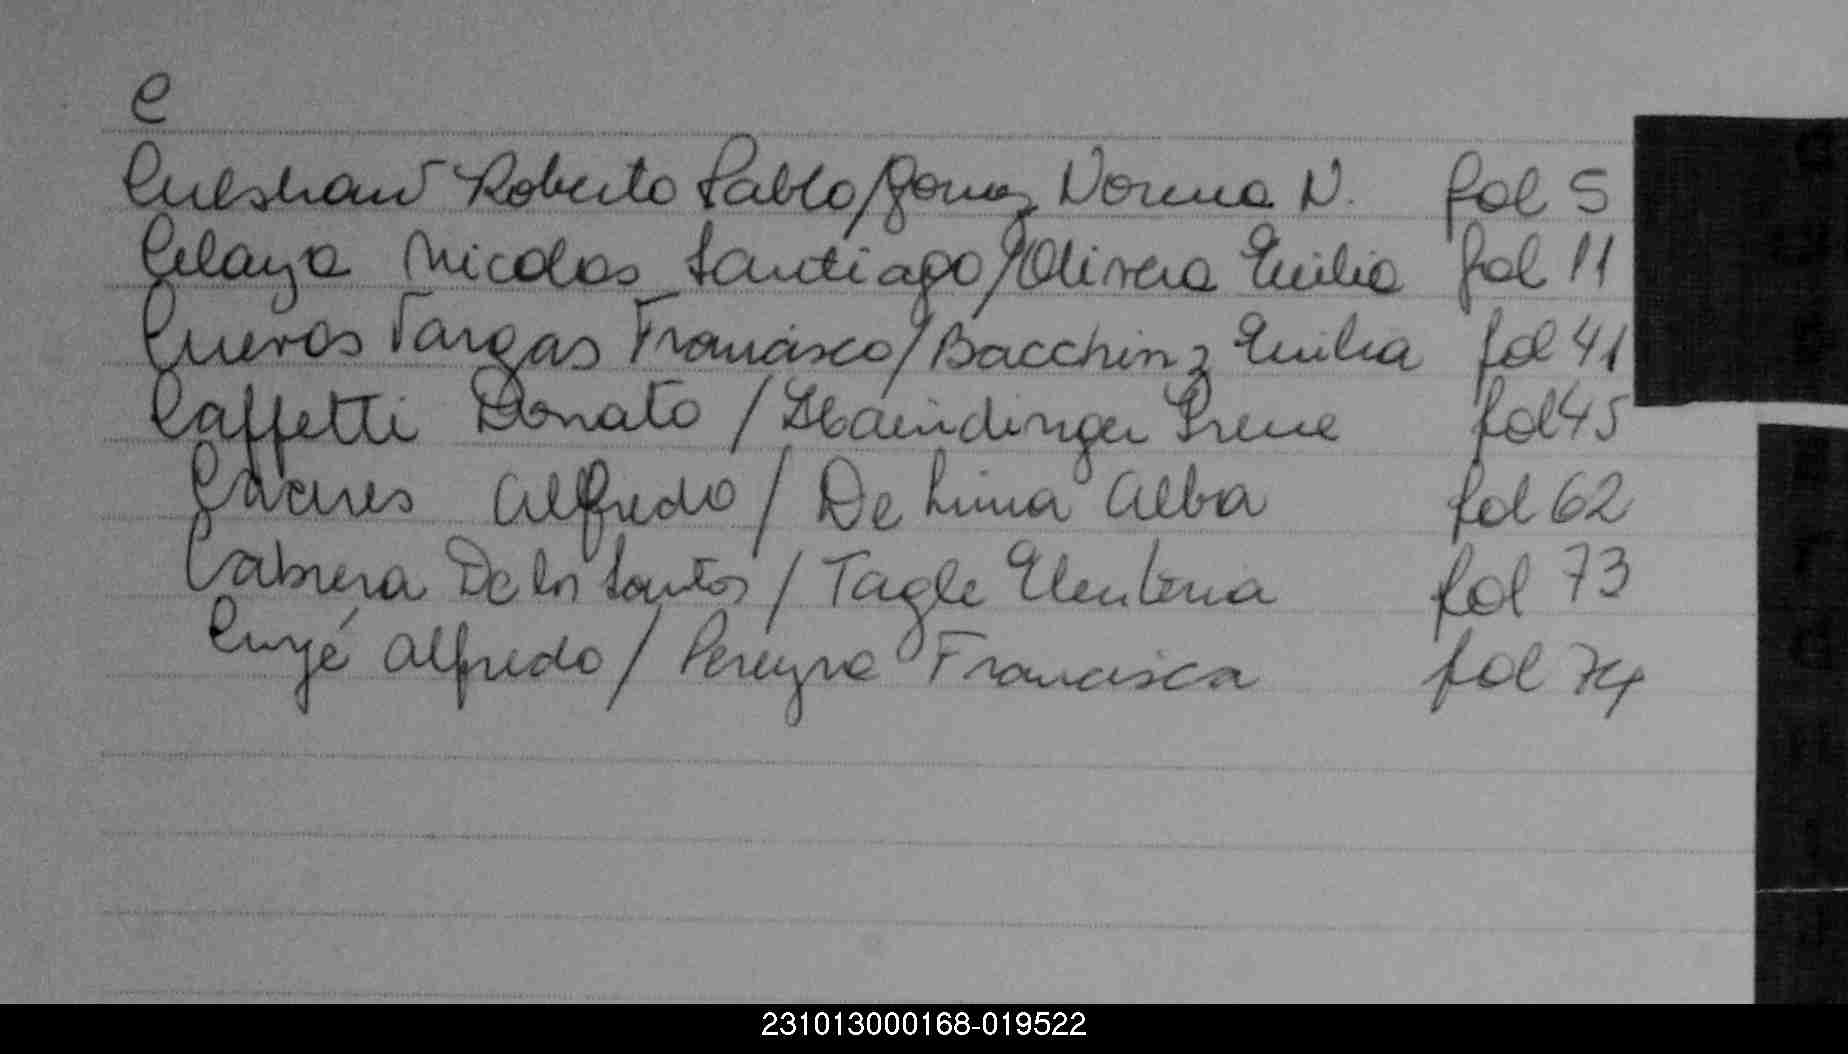 C
Culshaw Roberto Pablo/Gomez Norma N. fol 5
Celaya Nicolas Santiago/Olivera Emilia fol 11
Cuevas Vargas Francisco/Bacchinz Emilia fol 41
Caffetti Donato / Haindinger Irene fol 45
Alfredo / De Lima Alba fol 62
Cabrera De los Santos / Tagle Eleuteria fol 73
Alfredo / Pereyra Francisca fol 74
231013000168-019522